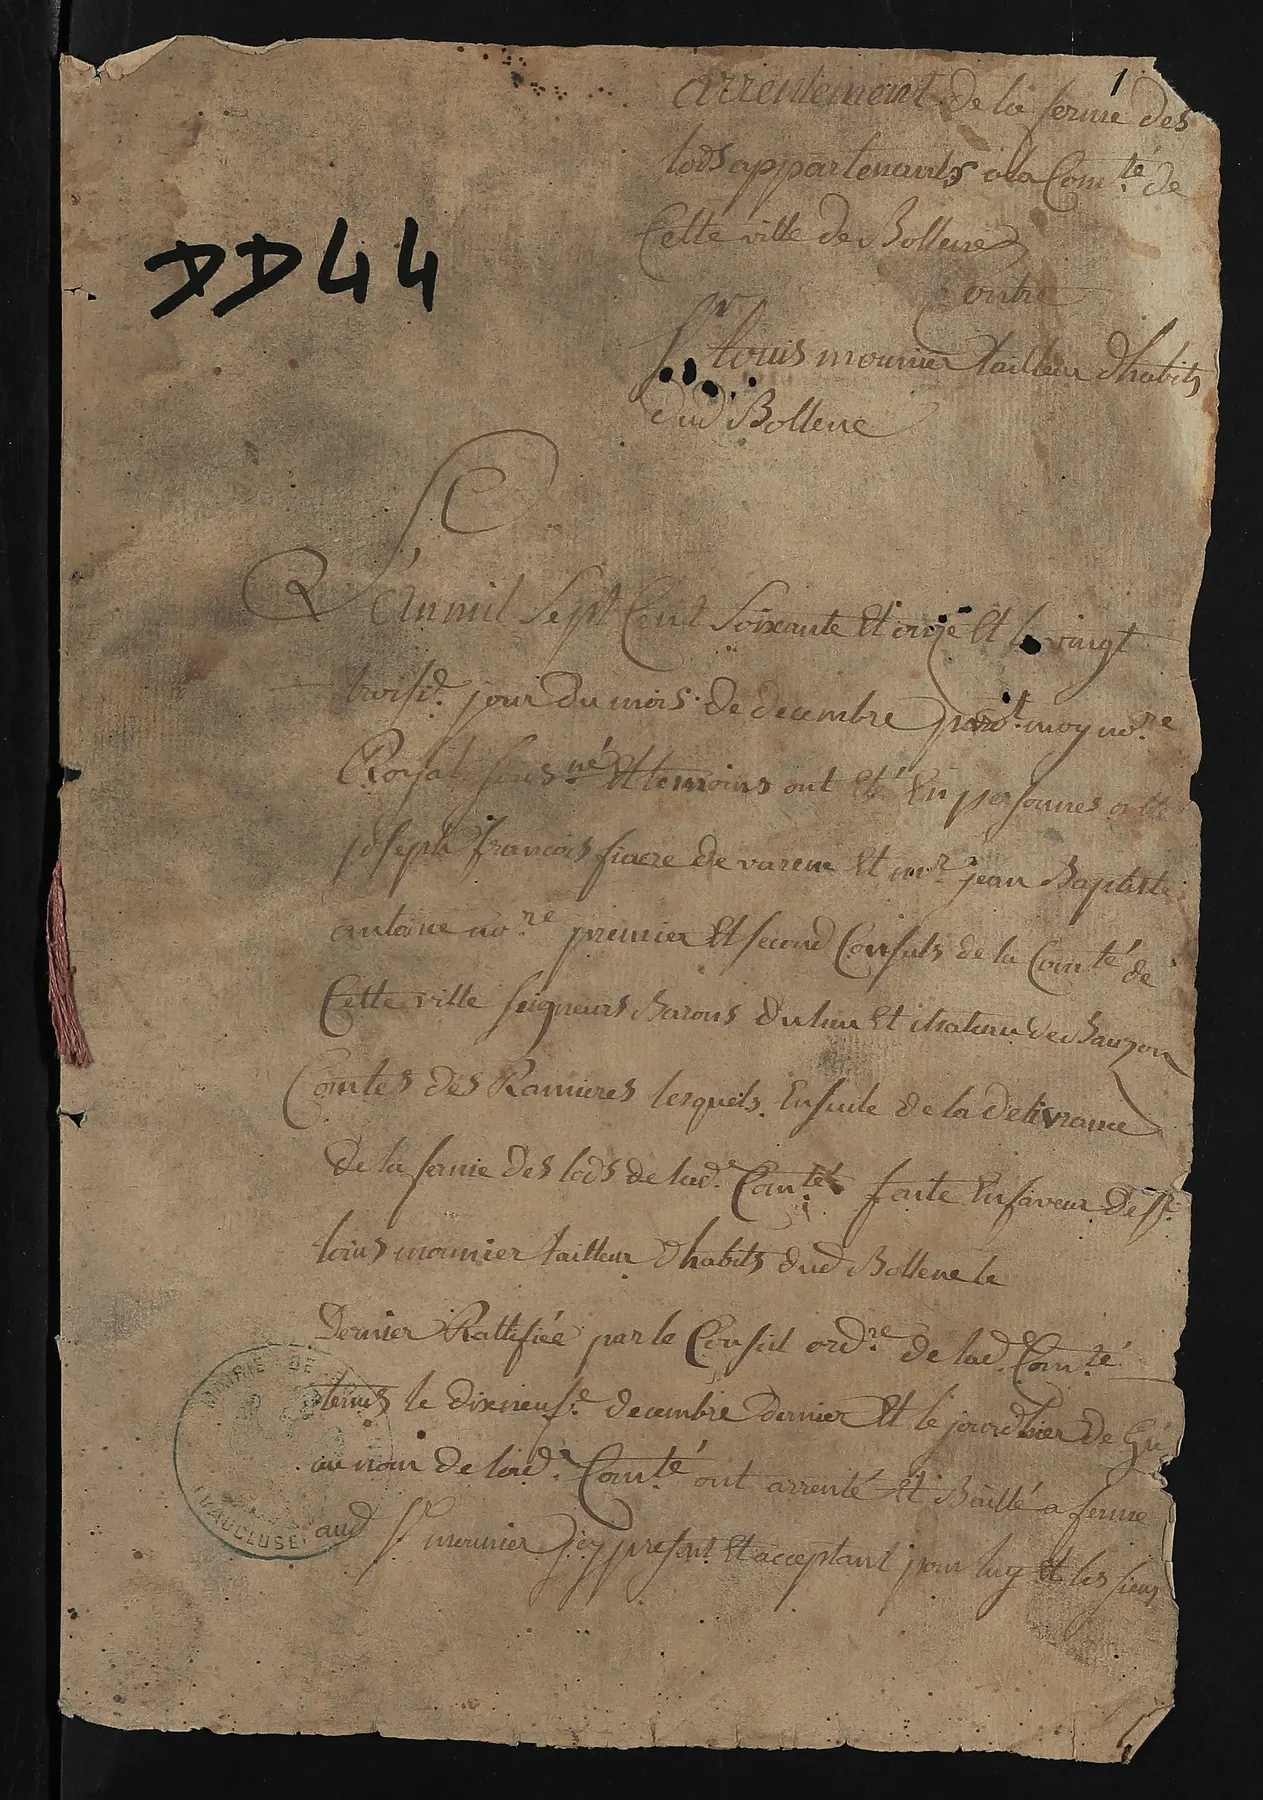 1
arrentement de la ferme des
lods appartenants ala Com.té de
Cette ville de Bollene
contre
Sr louis mounier tailleur dhabits
dud Bollene
DD44
L'an mil sept Cent soixante Et onze Et le vingt
troisie. jour du mois de decembre pardt. moy no.re
Royal sousné Et temoins ont Eté En personnes
joseph francois fiacre de varene Et mr. jean Baptiste
antoine no.re premier Et second Consuls de la Comté de
Cette ville seigneurs Barons du lieu Et chateau de Bauzon
Comtes des Ramieres lesquels Ensuite de la delivrance
de la ferme des lods de lade. Comté faite En faveur de Sr.
louis mounier tailleur dhabits dud Bollene le
Dernier Rattifiée par le Conseil ordre. de lad. Comté
tenus le dixneufe. decembre dernier Et le jourdhier de Gré
au nom de lade. Comté ont arrenté Et Baillé a ferme
aud Sr. mounier jcy present Et acceptant pour luy Et les siens
MAIRIE DE
VAUCLUSE